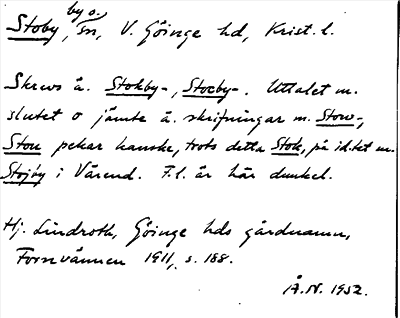 Stoby, by o. sn, V. Göinge hd, Krist. l.
Skrevs ä. Stokby-, Stocby-. Uttalet m.
slutet o jämte ä. skrifningar m. Stow-,
Stou pekar kanske, trots detta Stok, på id:tet m.
Stojby i Värend. F.l. är här dunkel.
Hj. Lindroth, Göinge hds gårdnamn,
Fornvännen 1911, s. 188.
Å.N. 1952.